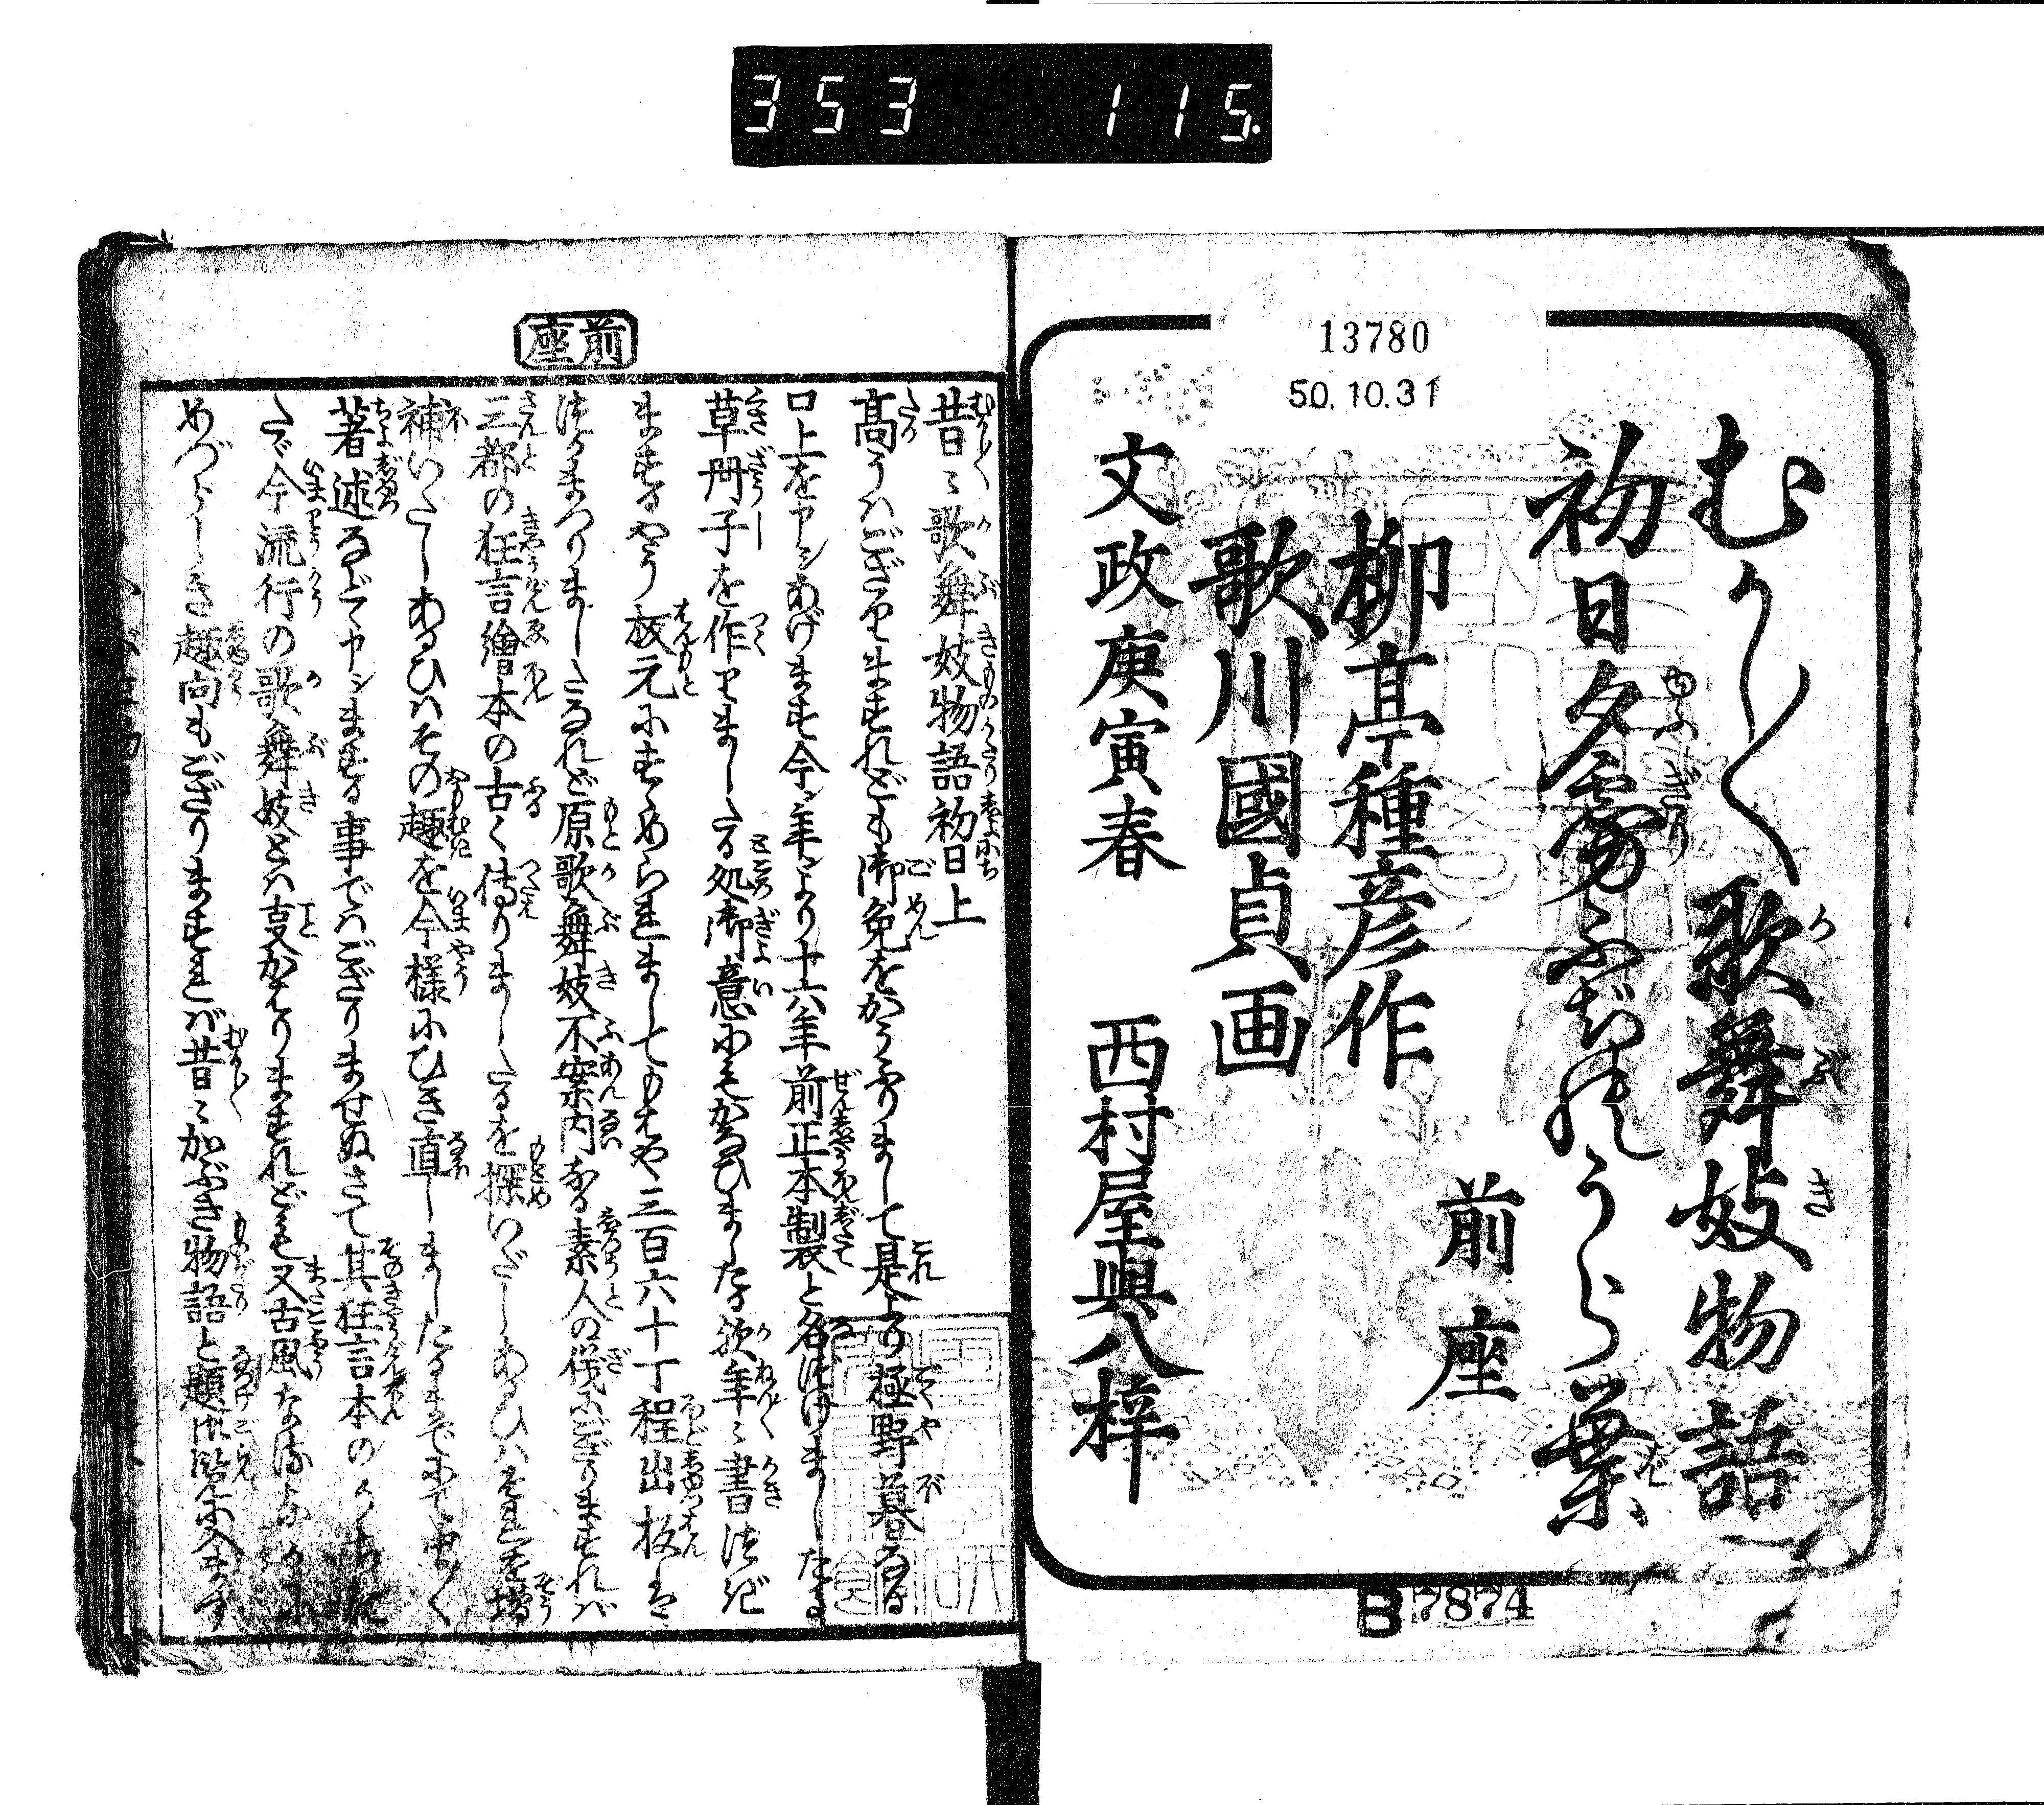 353 115.
13780
50.10.31
むかし〱歌舞妓物語
初日夕霧ふぢ屋うら葉
前座
柳亭種彦作
歌川國貞画
文政庚寅春 西村屋與八梓
B7874
前座
昔〻歌舞妓物語初日上
高うハござりますれども御免をかうふりまして是より極野暮なる
口上を申シあげます今年より十六年前正本製と名づけましたる
草冊子を作りましたる処御意にかなひましたる故年〻書つぎ
ますやう板元にすゝめられましてもはや三百六十丁程出板
つかまつりましたなれど原歌舞妓不案内なる素人の儀にござりますれバ
三都の狂言繪本の古く傳りましたるを探いだしあるひハ
補いたしあるひハその趣を今様にひき直しましたるまでにて
著述などゝ申シまする事でハござりませぬさて其狂言本のうちに
たゞ今流行の歌舞妓とハ事かはりますれども又古風な
めづらしき趣向もござりますれバ昔〻かぶき物語と題